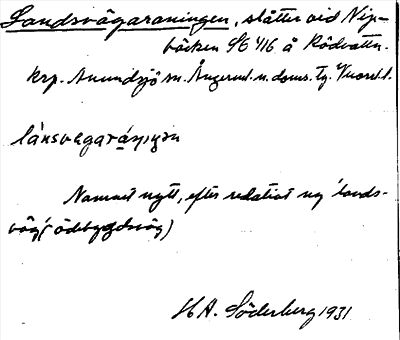 Landsvägaraningen, slåtter vid Nip-
bäcken SE 1/16 å Rödvattn.
krp. Anundsjö sn. Ångerml. n. doms. tg.
lánsvegaráṉiŋən
Namnet nytt, efter relativt ny 'lands-
väg' (ödebygdsväg)
H A. Söderberg 1931